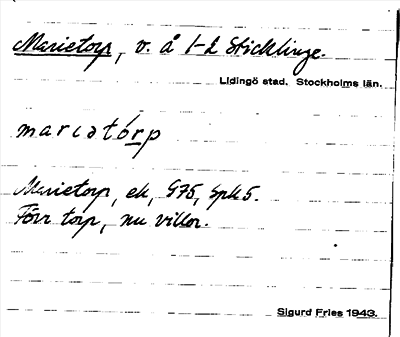 Marietorp, v. å 1-2 Sticklinge.
Lidingö stad. Stockholms län.
mariatórp
Marietorp, ek, G75, Spk 5.
Förr torp, nu villor.
Sigurd Fries 1943.